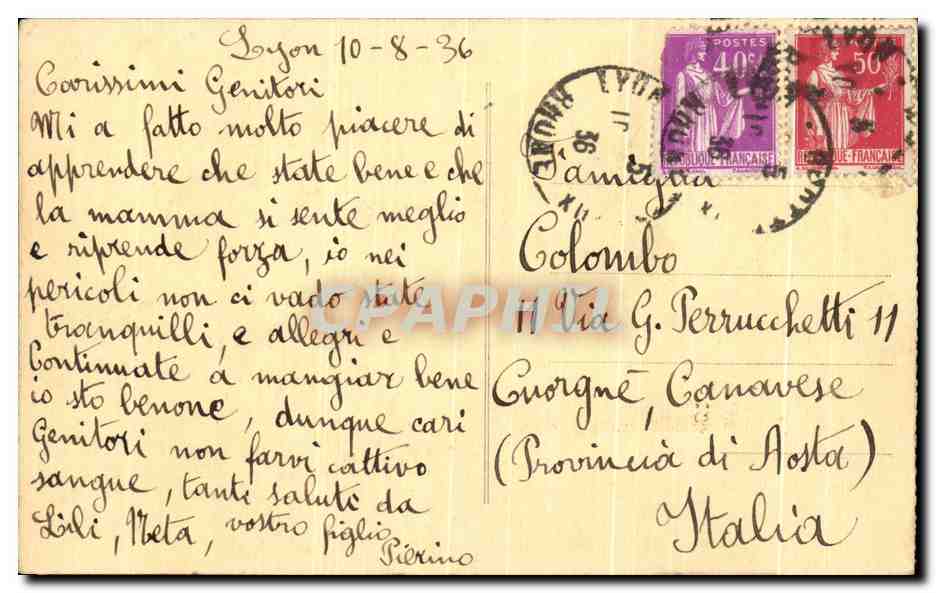 Lyon 10-8-36
Carissimi Genitori
Mi a fatto molto piacere di
apprendere che state bene e che
la mamma si sente meglio
e riprende forza, io nei
pericoli non ci vado state
tranquilli, e allegri e
Continuate a mangiar bene
io sto benone, dunque cari
Genitori non farvi cattivo
sangue, tanti saluti da
Lili, Neta, vostro figlio
Pierino
POSTES
40c
RÉPUBLIQUE-FRANÇAISE
50
RÉPUBLIQUE-FRANÇAISE
LYON
RHONE
11
36
Famiglia
Colombo
11 Via G. Perrucchetti 11
Cuorgnè, Canavese
(Provincia di Aosta)
Italia
CPAPHIL